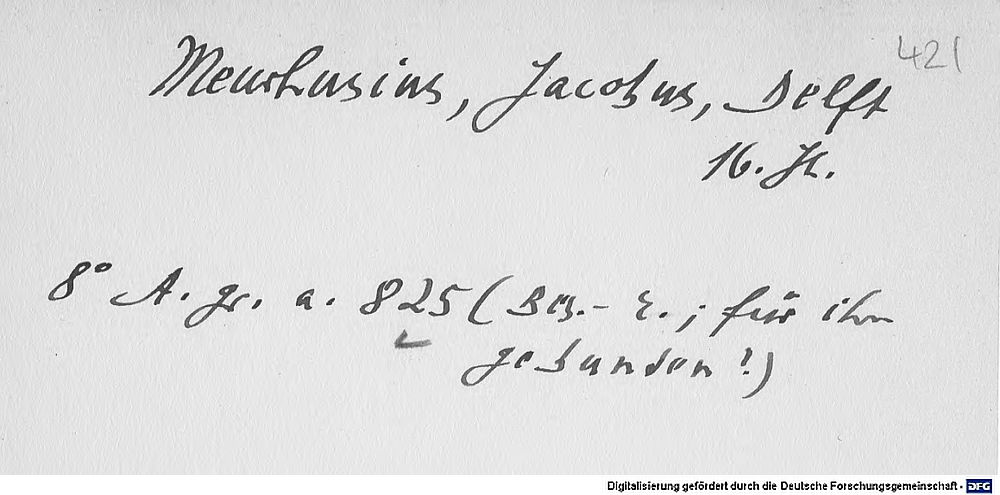 421
Meurhusius, Jacobus, Delft
16. Jh.
8° A. gr. a. 825 (Bes.- E.; für ihn
gebunden?)
Digitalisierung gefördert durch die Deutsche Forschungsgemeinschaft - DFG